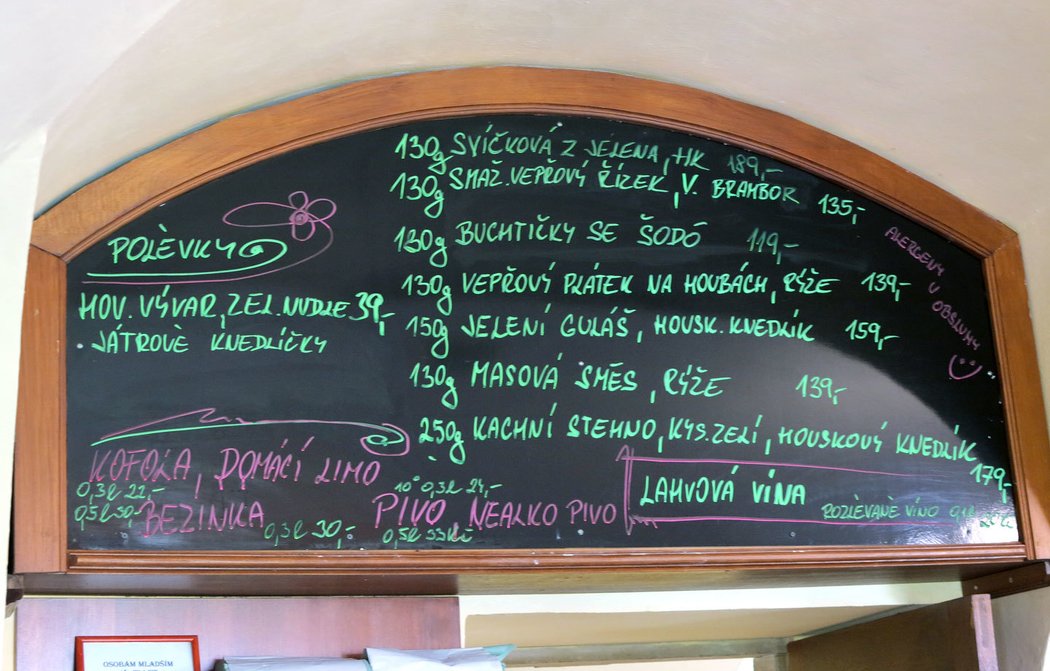 130g SVÍČKOVÁ Z JELENA, HK 189,-
130g SMAŽ. VEPŘOVÝ ŘÍZEK, V. BRAMBOR 135,-
130g BUCHTIČKY SE ŠODÓ 119,-
130g VEPŘOVÝ PLÁTEK NA HOUBÁCH, RÝŽE 139,-
150g JELENÍ GULÁŠ, HOUSK. KNEDLÍK 159,-
130g MASOVÁ SMĚS, RÝŽE 139,-
250g KACHNÍ STEHNO, KYS. ZELÍ, HOUSKOVÝ KNEDLÍK 179,-
POLÈVKY
HOV. VÝVAR, ZEL. NUDLE 39,-
JÁTROVÈ KNEDLÍČKY
ALERGENY U OBSLUHY
KOFOLA, DOMÁCÍ LIMO
0,3l 22,-
0,5l 30,-
BEZINKA
0,3l 30,-
10° 0,3l 24,-
PIVO, NEALKO PIVO
0,5l 33Kč
LAHVOVÁ VÍNA
ROZLÈVANÈ VÍNO 0,1l
OSOBÁM MLADŠÍM